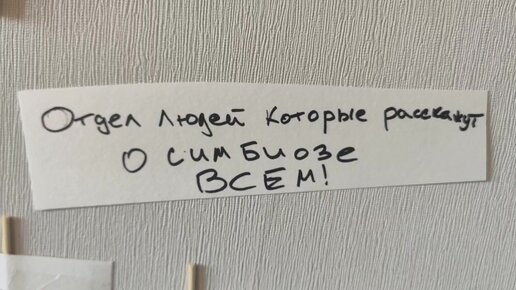 Отдел людей которые расскажут
о симбиозе
ВСЕМ!